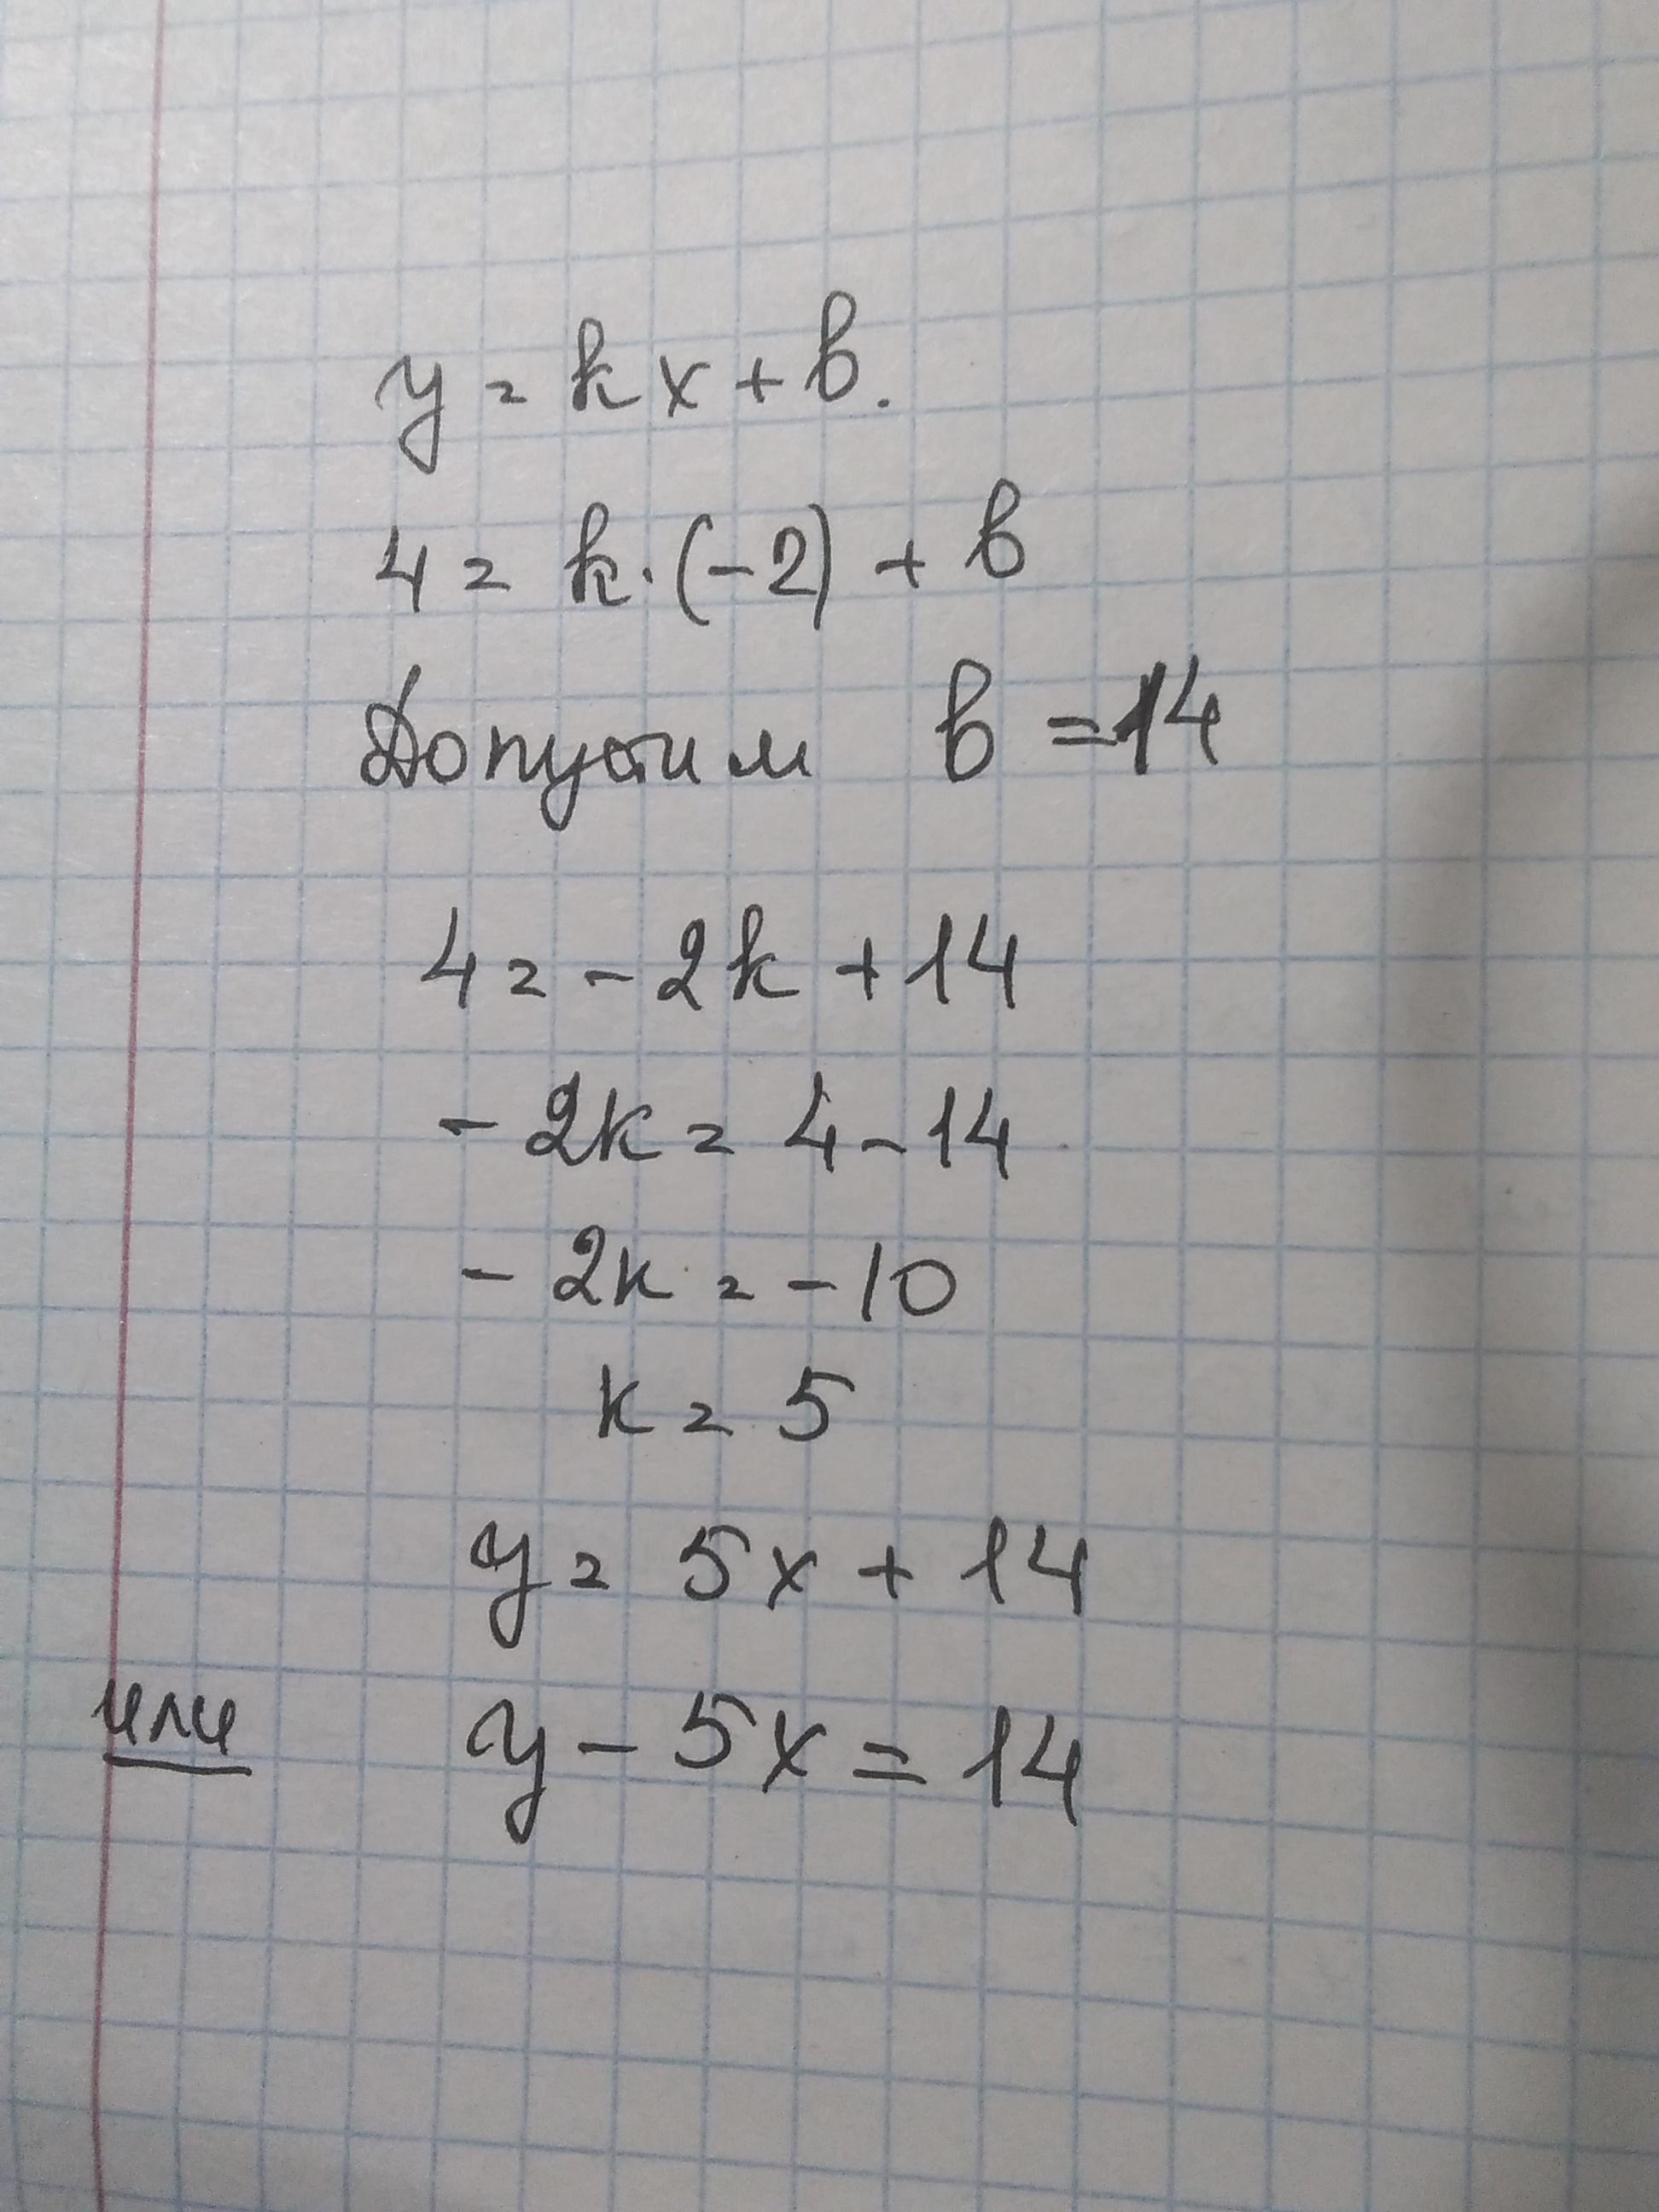 y = kx + b.
4 = k·(-2) + b
Допустим b = 14
4 = -2k + 14
-2k = 4 - 14
-2k = -10
k = 5
y = 5x + 14
или y - 5x = 14